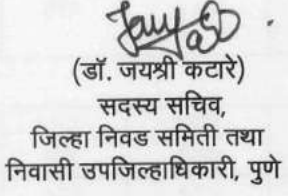 (डॉ. जयश्री कटारे)
सदस्य सचिव,
जिल्हा निवड समिती तथा
निवासी उपजिल्हाधिकारी, पुणे